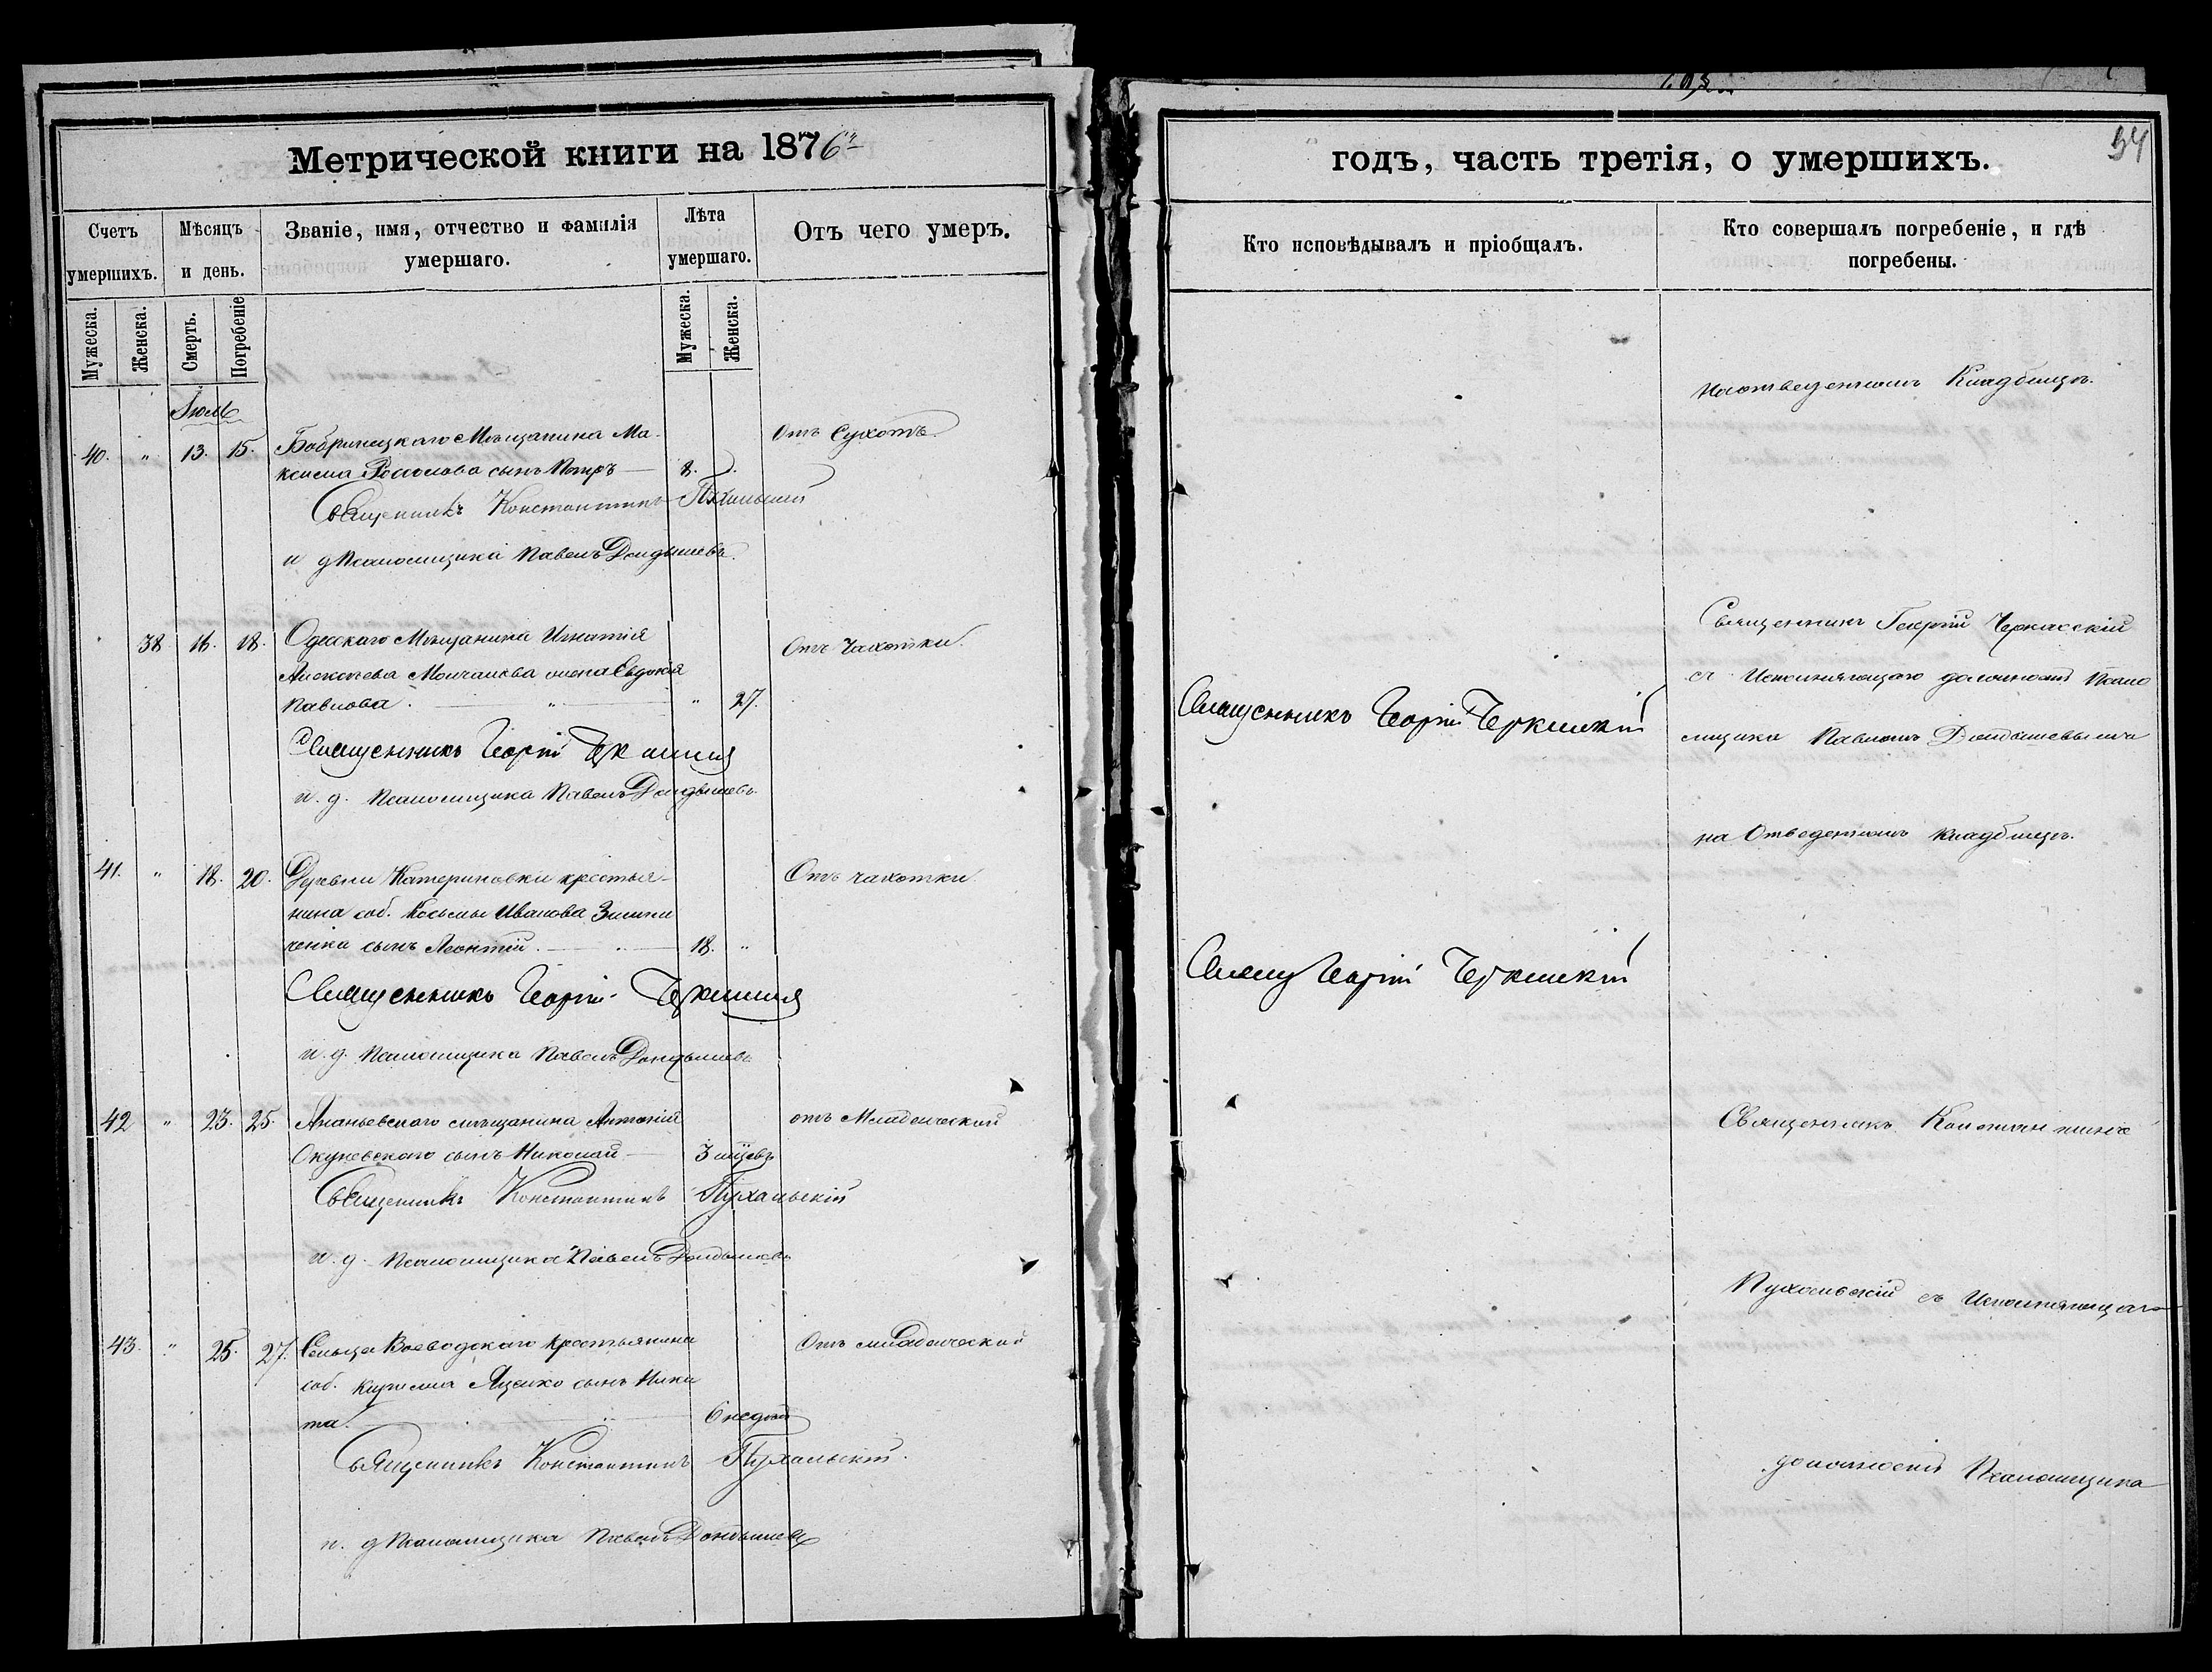 Метрической книги на 1876й
Счетъ умершихъ.
Мѣсяцъ и день.
Званіе, имя, отчество и фамилія умершаго.
Лѣта умершаго.
Отъ чего умеръ.
Мужеска.
Женска.
Смерть.
Погребеніе
Мужеска.
Женска.
Іюль
40. " 13. 15. Бобринецкаго Мѣщанина Ма- Отъ Сухотъ.
ксима сынъ Петръ — 8.
Священникъ Константинъ Пухальскій
и д Псаломщика Павелъ Дондышевъ.
38. 16. 18. Одесскаго Мѣщанина Игнатія Отъ Чахотки.
Алексѣева Молчанова жена Евдокія
Павлова. — " — " 27.
Священникъ Георгій Черкасскій
и. д. Псаломщика Павелъ Дондышевъ
41. " 18. 20. Деревни Катериновки крестья- Отъ чахотки
нина соб. Косьмы Иванова
ченка сынъ Леонтій. — 18. "
Священникъ Георгій Черкасскій
и. д. Псаломщика Павелъ Дондышевъ
42 " 23. 25. Ананьевскаго мѣщанина Антонія отъ Младенческой
Окуневскаго сынъ Николай — 3 мѣсцевъ
Священникъ Константинъ Пухальскій
и. д. Псаломщика Павелъ Дондышевъ
43. " 25. 27. Сельца Воеводскаго крестьянина Отъ младенческой
соб. Яценко сынъ Ники
та. — 6 недѣль
Священникъ Константинъ Пухальскій.
и. д Псаломщика Павелъ Дондышевъ
годъ, часть третія, о умершихъ.
54
Кто исповѣдывалъ и пріобщалъ.
Кто совершалъ погребеніе, и гдѣ погребены.
на отведенномъ Кладбищѣ.
Священникъ Георгій Черкасскій
съ Исполняющаго должность Псало
Священникъ Георгій Черкасскій
мщика Павломъ Дондышевымъ
на Отведенномъ кладбищѣ.
Священ Георгій Черкасскій
Священникъ Константинъ
Пухальскій съ Исполняющаго
должность Псаломщика